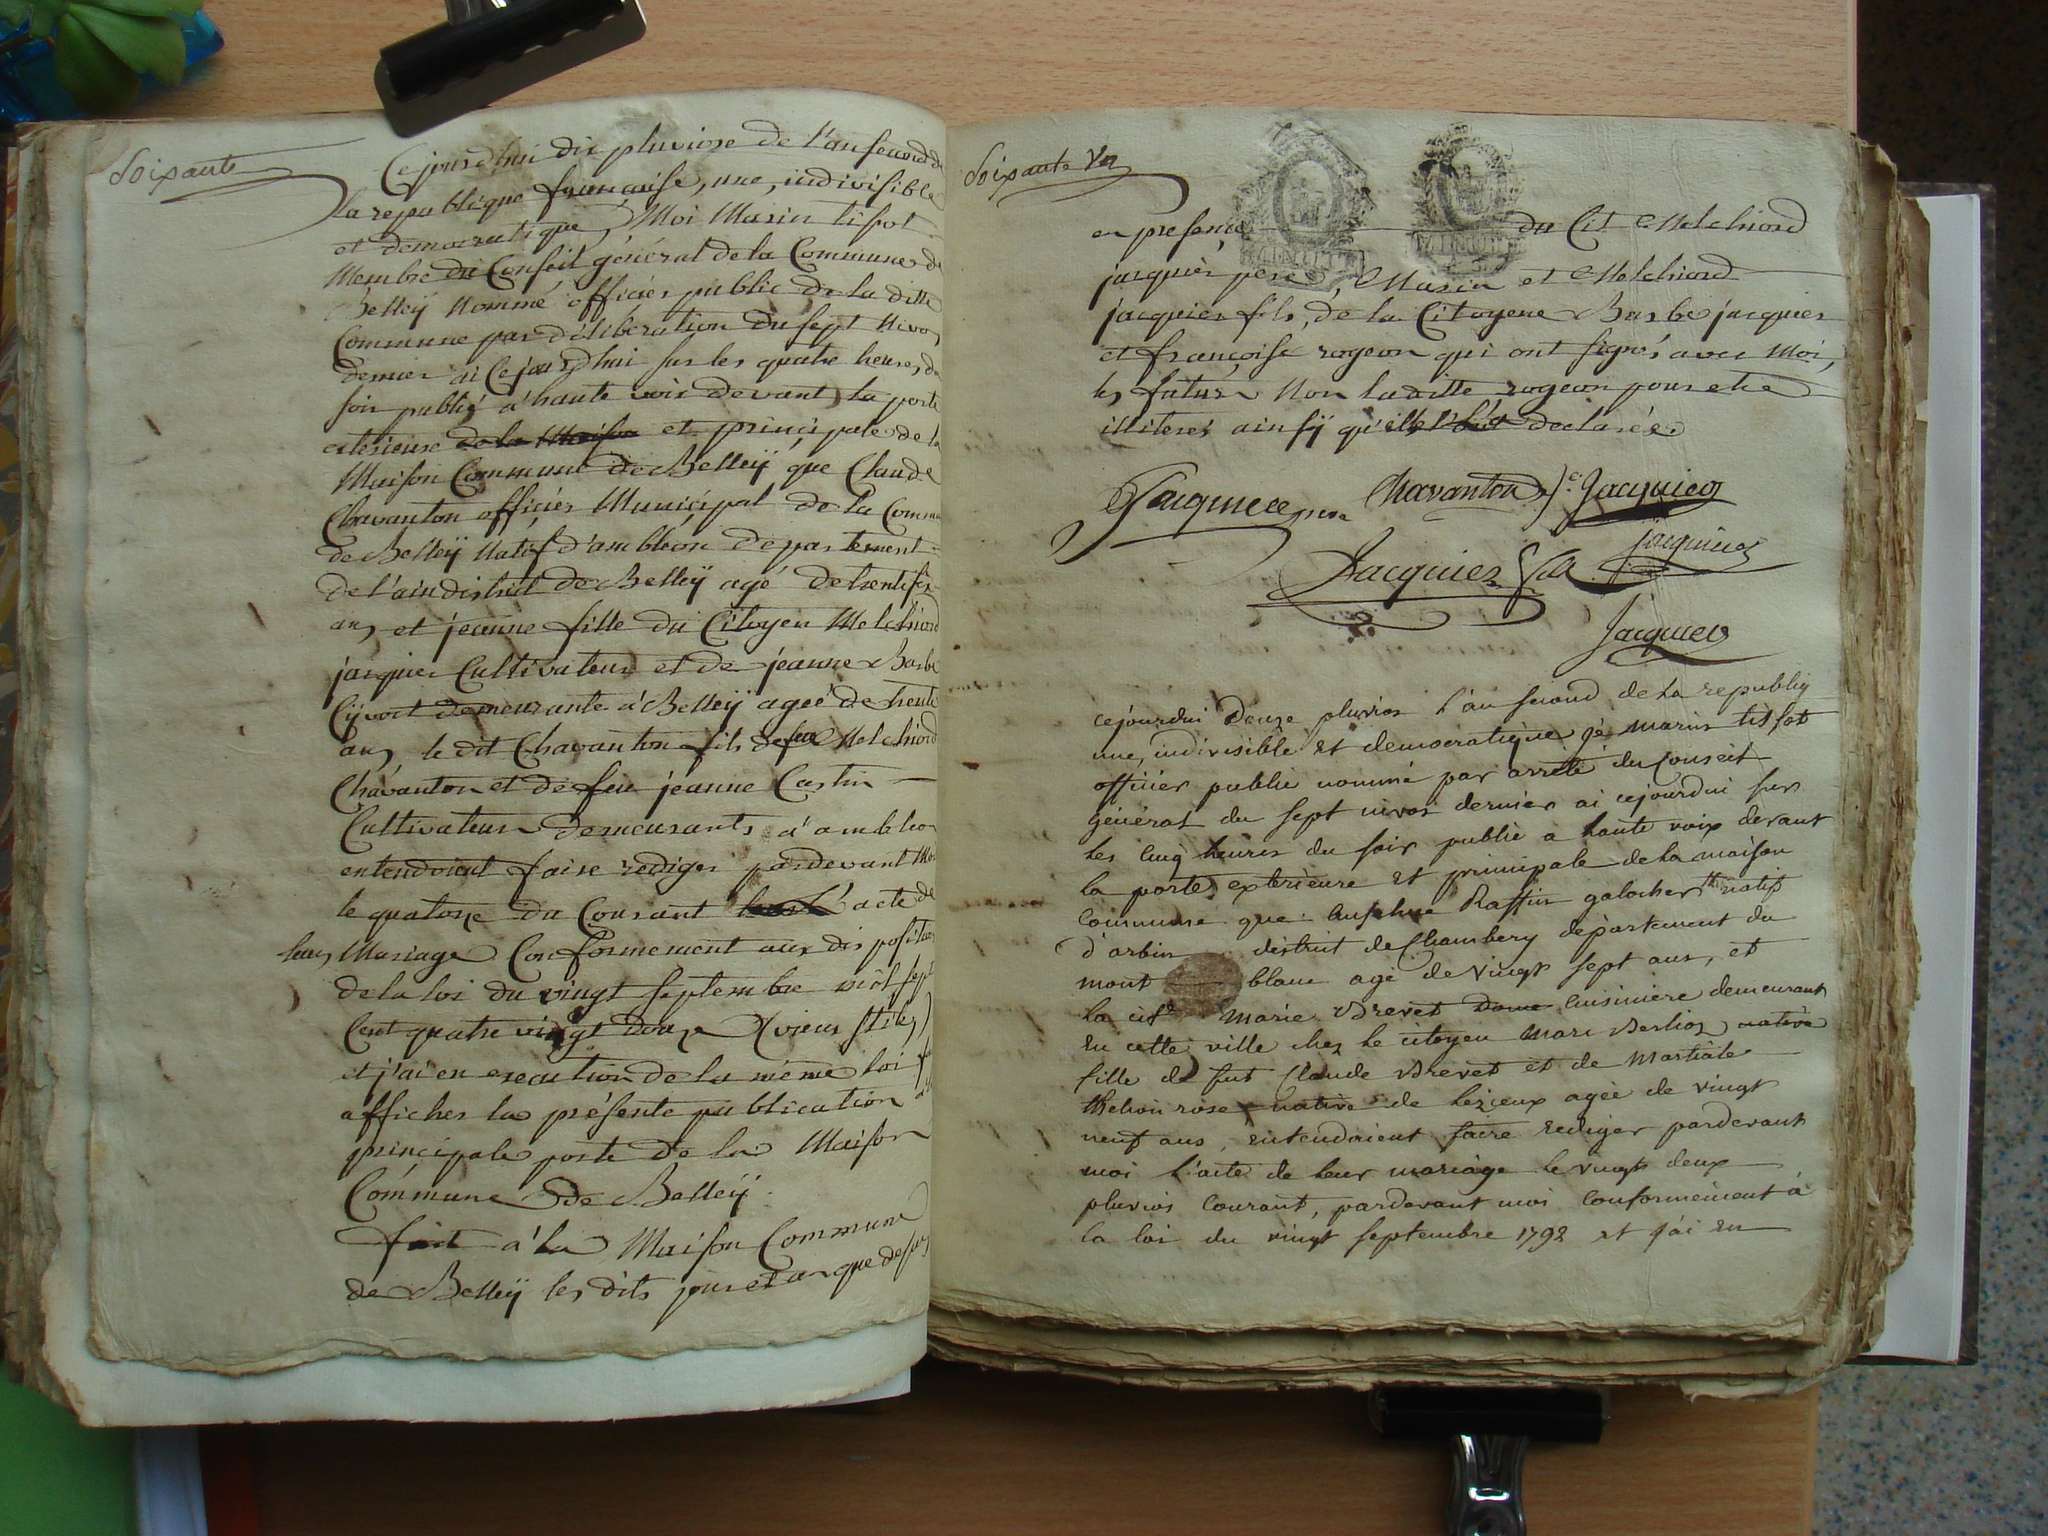 Soixante
Ce jourd'hui dix pluviose de l'an second de
la republique francaise, une, indivisible
et democratique, Moi Marin tisot
Membre du Conseil général de la Commune de
Belleÿ Nommé officier public de la ditte
Commune par déliberation du sept Nivos
dernier ai Cejourd'hui sur les quatre heures du
soir publié a haute voix devant la porte
exterieure de la Maison et principale de la
Maison Commune de Belleÿ que Claude
Chavanton officier Municipal de la Comm
de Belleÿ Natif d'ambléon departement
de l'ain district de Belleÿ agé de trente six
ans et jeanne fille du Citoyen Melchiord
jacquier Cultivateur et de jeanne Barbe
Cÿvoct demeurante à Belleÿ agée de trente
ans, le dit Chavanton fils de feu Melchiord
Chavanton et de feu jeanne Castin
Cultivateurs demeurants a ambleon
entendoient faire rediger pardevant Moi
le quatorze du Courant l'acte de
leur Mariage Conformement aux dispositions
de la loi du vingt septembre mil sept
Cent quatre vingt douze (vieux stile)
et j'ai en execution de la même loi fait
afficher la présente publication a la
principale porte de la Maison
Commune de Belleÿ.
fait a la Maison Commune
de Belleÿ les dits jour et an que dessus
Soixante Un
en presence du Cit Melchiord
jacquier pere, Marin et Melchiord
jacquier fils, de la Citoyene Barbe jacquier
et françoise rogeon qui ont signés avec Moi,
les futurs Non laditte rogeon pour etre
illiteré ainsÿ qu'elle l'a declarée.
Jacquier pere Chavanton Jacquier
Jacquier fils jacquier
Jacquier
cejourdui douze pluvios l'an second de la republiq
une, indivisible et democratique je marin tissot
officier public nommé par arrêté du conseil
général du sept nivos dernier ai cejourdui sur
les cinq heures du soir publié a haute voix devant
la porte exterieure et principale de la maison
commune que anselme Raffin galocher natif
d'arbin district de Chambery département du
mont blanc agé de vingt sept ans, et
la cit Marie Brevet cuisiniere demeurant
en cette ville chez le citoyen marc Berlioz native
fille de fut Claude Brevet et de Martiale
thelion rose native de lezieux agée de vingt
neuf ans, entendoient faire rediger pardevant
moi l'acte de leur mariage le vingt deux
pluvios courant, pardevant moi conformément à
la loi du vingt septembre 1792 et j'ai en